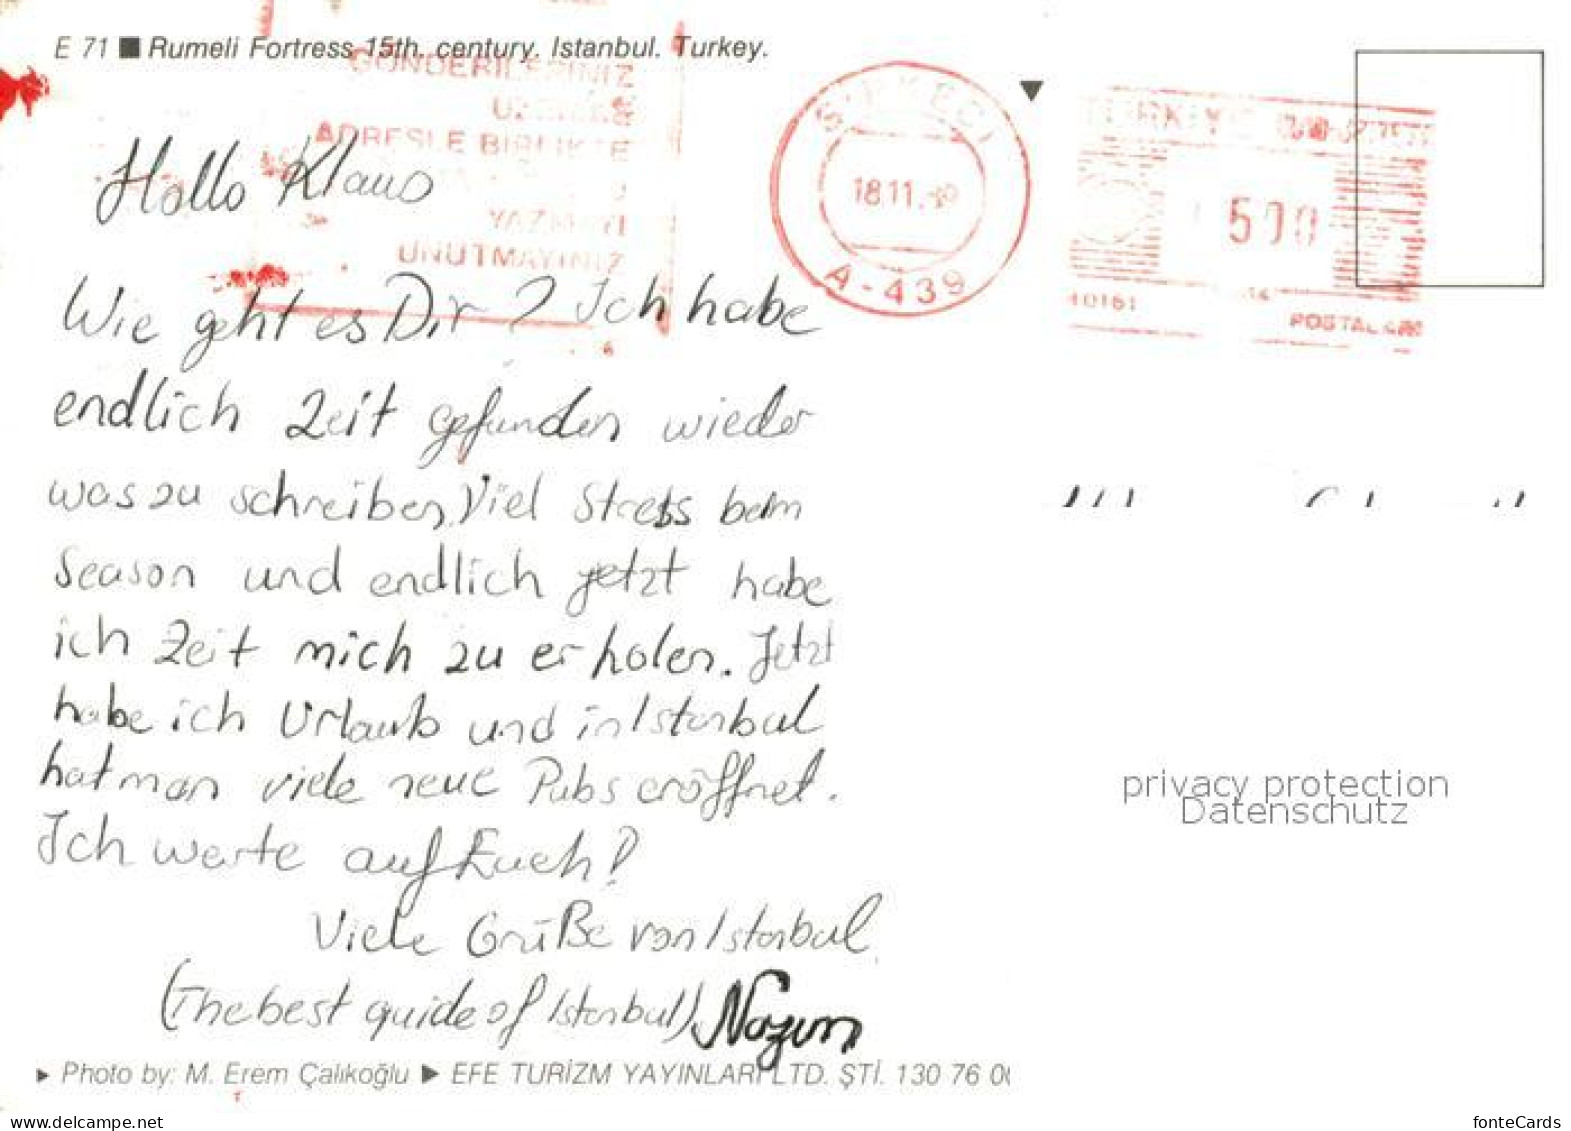 E 71 ■ Rumeli Fortress 15th. century. Istanbul. Turkey.
GÖNDERİLERİNİZ
ADRESLE BİRLİKTE
YAZMAYI
UNUTMAYINIZ
SİRKECİ
18.11.
A-439
TÜRKİYE
500
10161
POSTALARI
Hallo Klaus
Wie geht es Dir? Ich habe
endlich Zeit gefunden wieder
was zu schreiben. Viel Stress beim
Season und endlich jetzt habe
ich Zeit mich zu erholen. Jetzt
habe ich Urlaub und in Istanbul
hat man viele neue Pubs eröffnet.
Ich warte auf Euch!
Viele Grüße von Istanbul
(The best guide of Istanbul) Nazım
privacy protection
Datenschutz
▶ Photo by: M. Erem Çalıkoğlu ▶ EFE TURİZM YAYINLARI LTD. ŞTİ. 130 76
www.delcampe.net
fonteCards